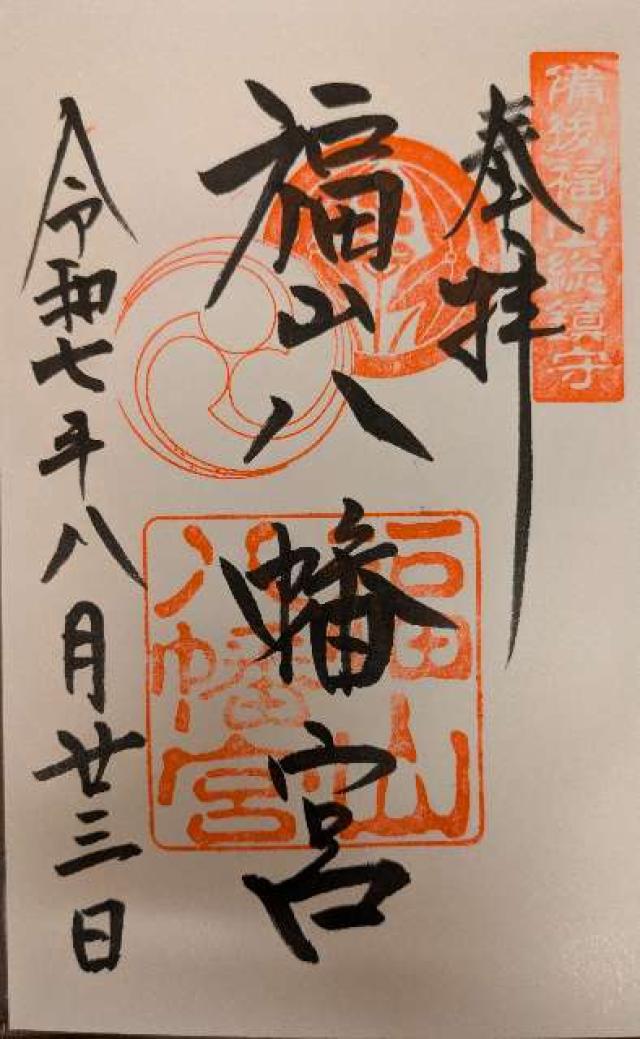 備後福山総鎮守
奉拝
福山八幡宮
福山
八幡宮
令和七年八月廿三日